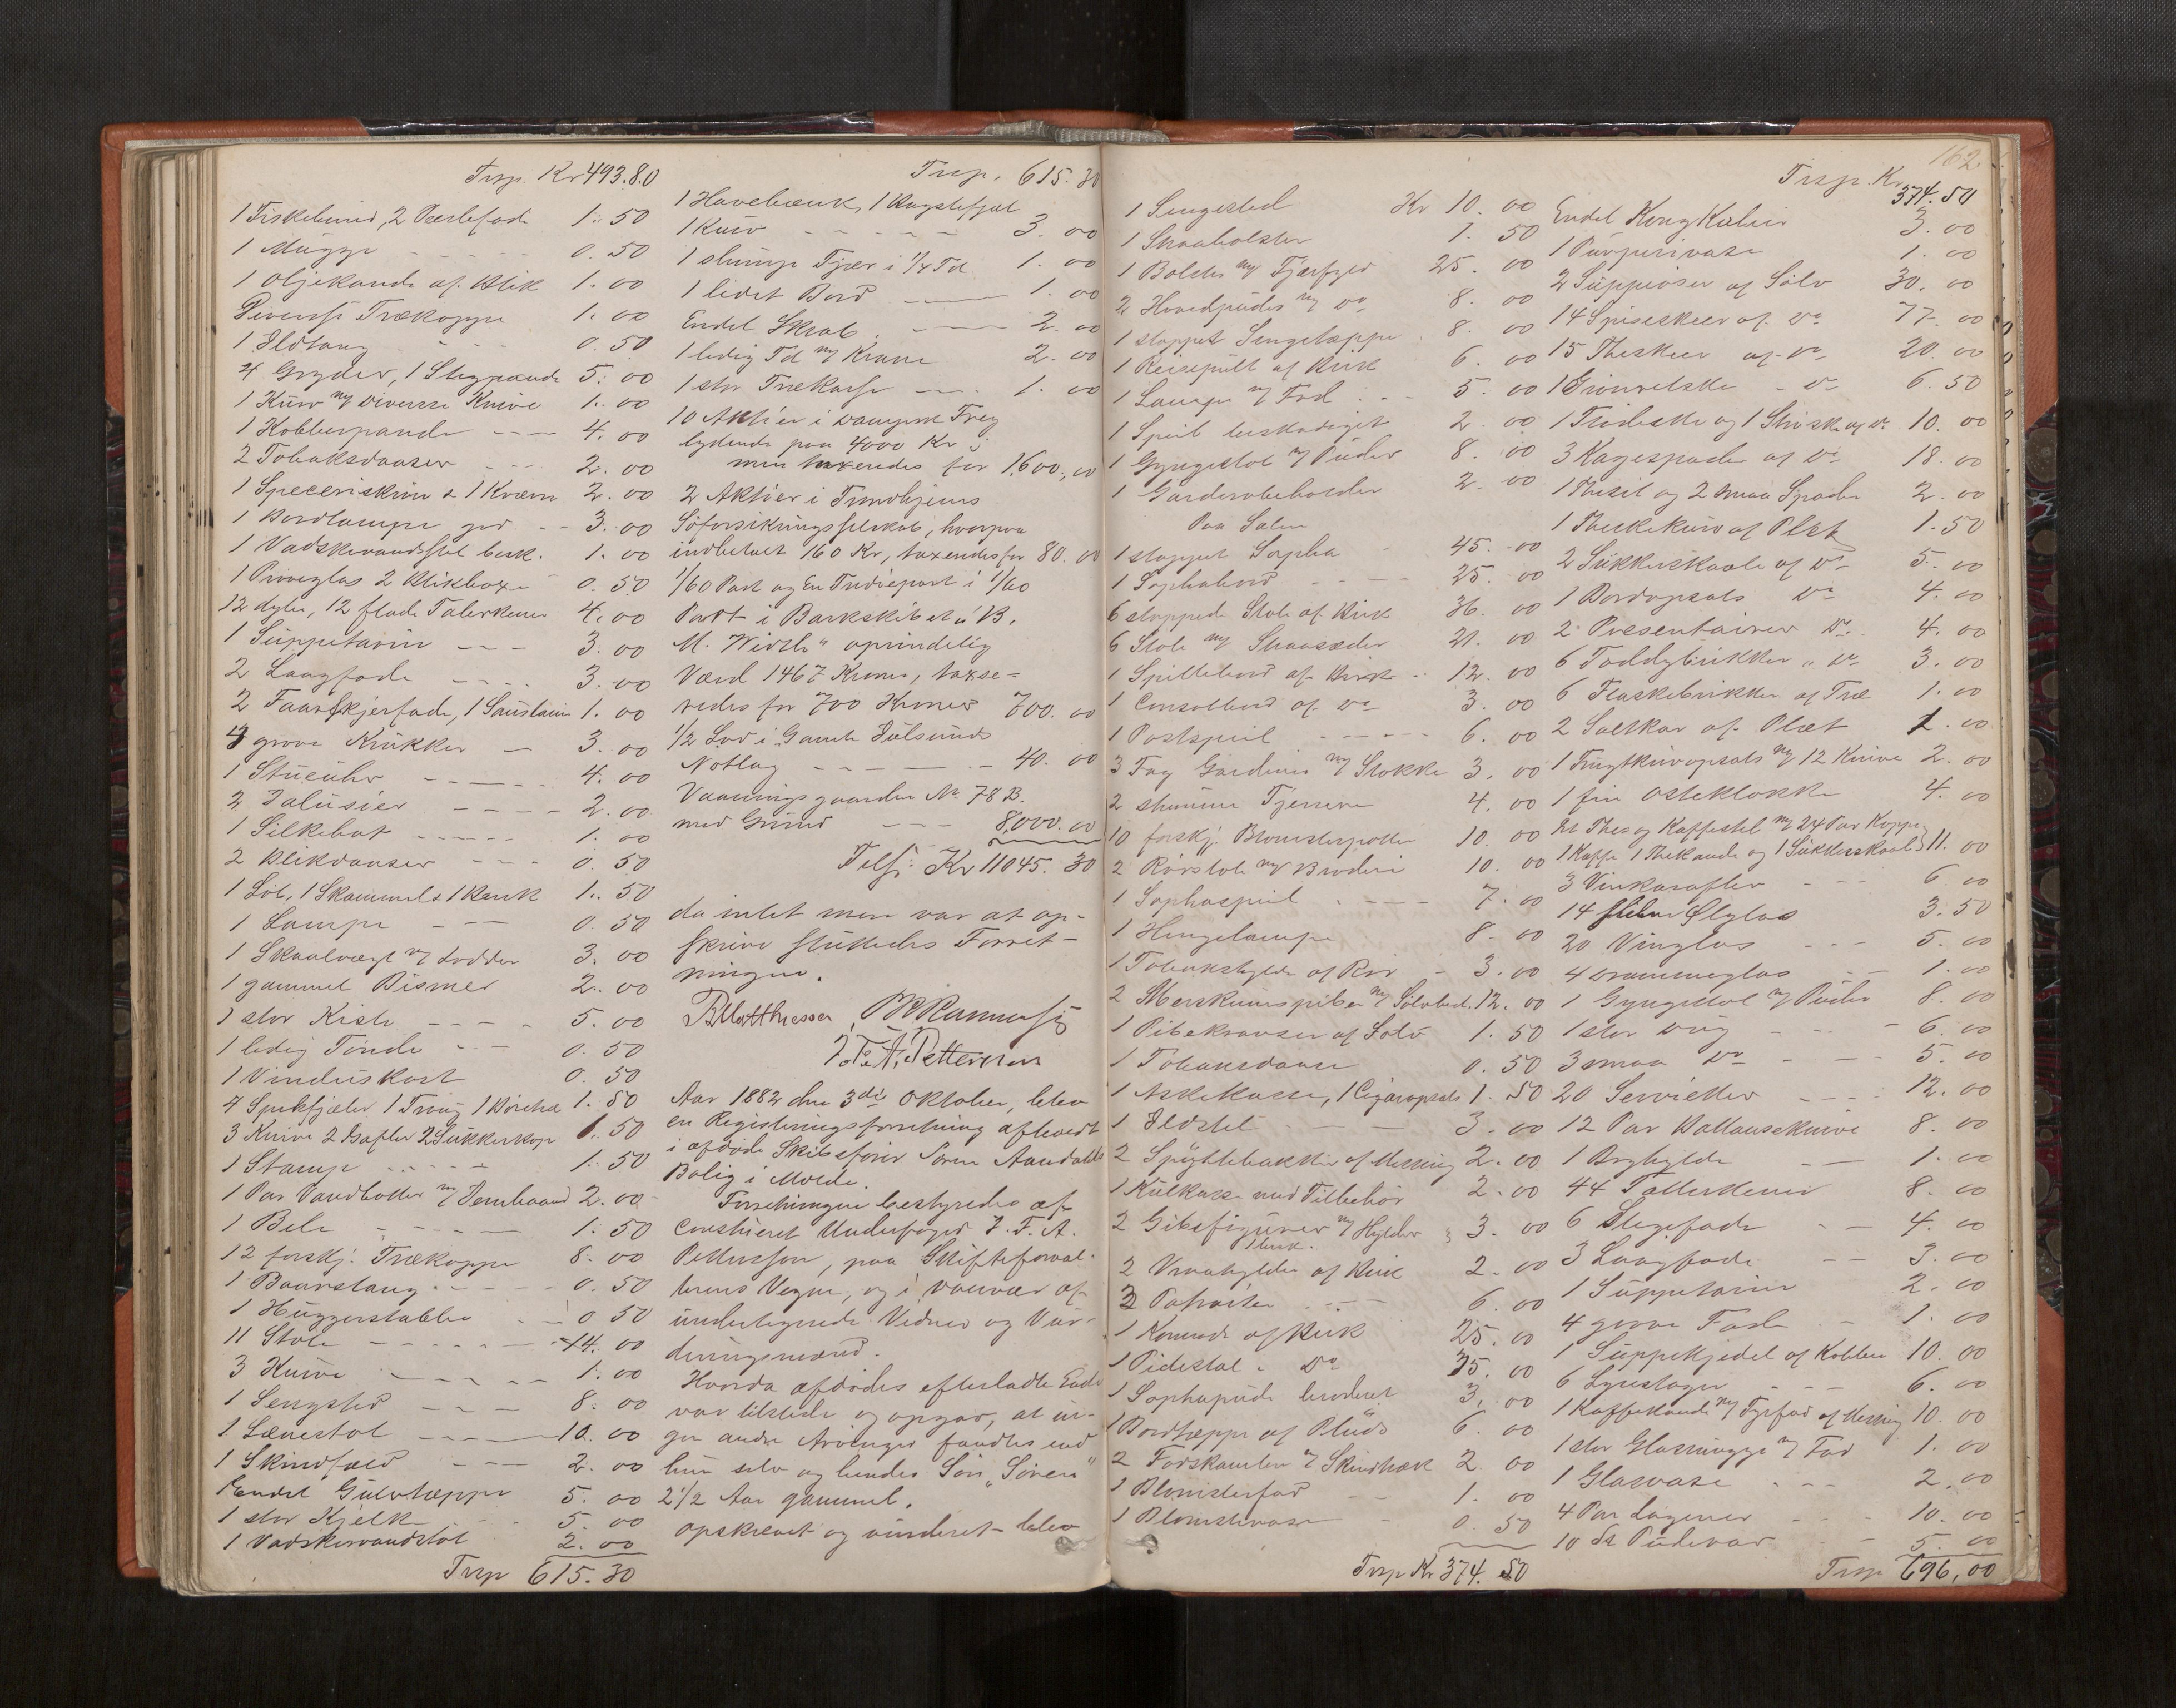 Trsp. Kr 493.80
1 Fiskebund, 2 Vaskefade 1. 50
1 Mugge 0. 50
1 Oljekande af Blik 1. 00
Diverse Trækoppe 1. 00
1 Ildtang 0. 50
4 Gryder, 1 Stegpande 5. 00
1 Kurv m/ diverse Knive 1. 00
1 Kobberpande 4. 00
2 Tobaksdaaser 2. 00
1 Speceriskrin & 1 Kværn 2. 00
1 Bordlampe god 3. 00
1 Vadskevandsstel besk. 1. 00
1 Prøveglas 2 Blikboxe 0. 50
12 dybe, 12 flade Talerkener 4. 00
1 Suppeterin 3. 00
2 Laagfade 3. 00
2 Faarskjerfade, 1 Sausterrin 1. 00
4 grove Krukker 3. 00
1 Stueuhr 4. 00
2 Jalusier 2. 00
1 Silkehat 1. 00
2 Blikdaaser 0. 50
1 Lob, 1 Skammel & 1 Bænk 1. 50
1 Lampe 0. 50
1 Skaalvægt m/ Lodder 3. 00
1 gammel Bismer 2. 00
1 stor Kiste 5. 00
1 ledig Tønde 0. 50
1 Vinduskost 0. 50
4 Spekfjæler 1 Traug 1 1. 50
3 Knive 2 Gafler 2 Sukkerkop 1. 50
1 Stamp 1. 50
1 Par Vandbøtter m/ Jernbaand 2. 00
1 Bile 1. 50
12 forskj. Trækoppe 8. 00
1 Baarstang 0. 50
1 Huggestabbe 0 50
11 Stole 14. 00
3 Knive 1. 00
1 Sengsted 8. 00
1 Lænestol 10. 00
1 Skindfæld 2. 00
Endel Gulvtæppe 5. 00
1 stor Kjelke 5. 00
1 Vadskevandstol 2. 00
Trsp 615. 30
Trsp. 615. 30
1 Havebænk, 1 Bagstefjæl
1 Kurv 3. 00
1 slump Tjære i 1/4 Td 1. 00
1 lidet Bord 1. 00
Endel Skrab 2. 00
1 ledig Td m/ Krane 2. 00
1 stor Trækasse 1. 00
10 Aktier i Dampsk Frey
lydende paa 4000 Kr;
men taxeredes for 1,600. 00
2 Aktier i Trondhjems
Søforsikringsselskab, hvorpaa
indbetalt 160 Kr, taxeredes for 80. 00
1/60 Part og En Trediepart i 1/60
Part i Barkskibet "B.
M. Width" oprindelig
Værd 1467 Kroner, taxse-
redes for 700 Kroner 700. 00
1/2 Lod i Gamle Julsunds
Notlag 40. 00
Vaaningsgaarden No 78 B.
med Grund 8,000. 00
Tils. Kr 11045. 30
da intet mere var at op-
skrive sluttedes Forret-
ningen.
B Matthiessen
J. F. A. Petterson
Aar 1882 den 3die Oktober, blev
en Registeringsforretning afholdt
i afdøde Skibsfører Søren Aandahls
Bolig i Molde.
Forretningen bestyredes af
constitueret Underfoged J. F. A.
Petterson, paa Skifteforval-
terens Vegne, og i Nærvær af
undertegnede Vidner og Vur-
deringsmænd.
Hvorda afdødes efterladte Enke
var tilstede og opgav, at in-
gen andre Arvinger fandtes end
hun selv og hendes Søn "Søren"
2 1/2 Aar gammel.
opskrevet og vurderet blev
162.
1 Sengested Kr 10. 00
1 Skraaholster 1. 50
1 Bolster m/ Fjærfyld 25. 00
2 Hovedpuder m/ Do 8. 00
1 stoppet Sengetæppe 8. 00
1 Reisepult af Birk 6. 00
1 Lampe m/ Fod 5. 00
1 Speil beskadiget 2. 00
1 Gyngestol m/ Puder 8. 00
1 Garderobeholder 2. 00
Paa Salen
1 stoppet Sopha 45. 00
1 Sophabord 25. 00
6 stoppede Stole af Birk 36. 00
6 Stole m/ Straasæder 21. 00
1 Spillebord af Birk 12. 00
1 Consolbord af Do 3. 00
1 Postspeil 6. 00
3 Fag Gardiner m/ Stokke 3. 00
2 stumme Tjenere 4. 00
10 forskj. Blomsterpotter 10. 00
2 Rørstole m/ Broderi 10. 00
1 Sophaspeil 7. 00
1 Hengelampe 8. 00
1 Tobakshylde af Rør 3. 00
2 Merskumspiber m/ Sølvbesl. 12. 00
1 Pibekrandser af Sølv 1. 50
1 Tobaksdaase 0. 50
1 Askekasse, 1 Cigaropsats 1. 50
1 Ildstel 3. 00
2 Spyttebakker af Messing 2. 00
1 Kulkasse med Tilbehør 2. 00
2 Gibsfigurer m/ Hylder 3. 00
1 besk.
2 Vraahylder af Birk 2. 00
2 Portraiter 6. 00
1 Komode af Birk 25. 00
1 Pidestal " Do 35. 00
1 Sophapude broderet 3. 00
1 Bordtæppe af Pluds 6. 00
2 Fodskamler m/ Skindtræk 2. 00
1 Blomsterfad 1. 00
1 Blomstervase 0. 50
Trsp Kr 374. 50
Trsp. Kr 374. 50
Endel Kongkelier 3. 00
1 Purpurivase 1. 00
2 Suppeøser af Sølv 30. 00
14 Spiseskeer af Do 77. 00
15 Theskeer af Do 20. 00
1 Grønretske Do 6. 50
1 Fiskeske og 1 Strøske af Do 10. 00
3 Kagespader af Do 18. 00
1 Thesil og 2 smaa Spader 2. 00
1 Theskekurv af Plet 1. 50
2 Sukkerskaale af Do 5. 00
1 Bordopsats Do 4. 00
2 Presentairer Do 4. 00
6 Toddybrikker " Do 3. 00
6 Flaskebrikker af Træ 1. 00
2 Saltkar af Plet 1. 00
1 Frugtkurvopsats m/ 12 Knive 2. 00
1 fin Osteklokke 4. 00
Et The og Kaffestel m/ 24 Par Kopper
1 Kaffe 1 Thekande og 1 Sukkerskaal 11. 00
3 Vinkarafler 6. 00
14 Ølglas 3. 50
20 Vinglas 5. 00
4 Drammeglas 1. 00
1 Gyngestol m/ Puder 8. 00
1 stor Dug 6. 00
3 smaa Do 5. 00
20 Servietter 12. 00
12 Par Ballanseknive 8. 00
1 Baghylde 1. 00
44 Tallerkener 8. 00
6 Stegefade 4. 00
3 Laagfade 3. 00
1 Suppeterin 2. 00
4 grove Fade 1. 00
1 Suppekjedel af Kobber 10. 00
6 Lysestager 6. 00
1 Kaffekande m/ Fyrfad af Messing 10. 00
1 stor Glasmugge m/ Fad 1. 00
1 Glasvase 2. 00
4 Par Lagener 10. 00
10 St Pudevar 5. 00
Trsp 696,00